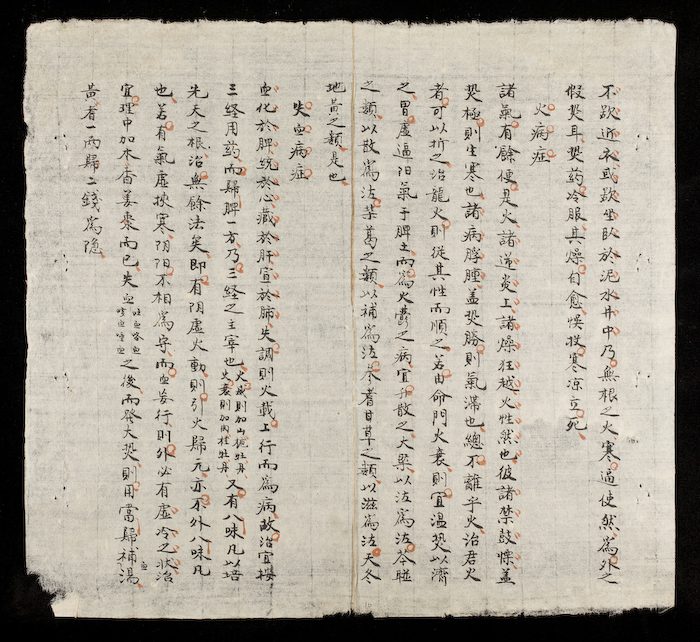 不欲近衣或欲坐臥於泥水井中乃無根之火寒逼使然爲外之
假熱耳熱药冷服其燥自愈悞投寒凉立死
火病症
諸氣有餘便是火諸逆炎上諸燥狂越火性然也彼諸禁鼓慄盖
熱極則生寒也諸病胕腫盖熱勝則氣滯也總不離乎火治君火
者可以折之治龍火則從其性而順之若由命門火衰則宜温熱以濟
之胃虛逼阳氣于脾土而爲火鬱之病宜升散之大槩以泻爲法芩
之類以散爲法柴葛之類以補爲法参耆甘草之類以滋爲法天冬
地黄之類是也
失血病症
血化於脾統於心藏於肝宣於肺失調則火載上行而爲病故治宜
三経用药而歸脾一方乃三経之主宰也火盛則加山梔牡丹火衰則加肉桂牡丹又有八味凡以培
先天之根治無餘法矣即有阴虛火動則引火歸元亦不外八味凡
也若有氣虛挾寒阴阳不相爲守而血妄行則外必有虛冷之狀治
宜理中加木香姜棗而已失血吐血咯血之後而發大熱則用當歸補血湯
黄耆一两歸二錢爲隐